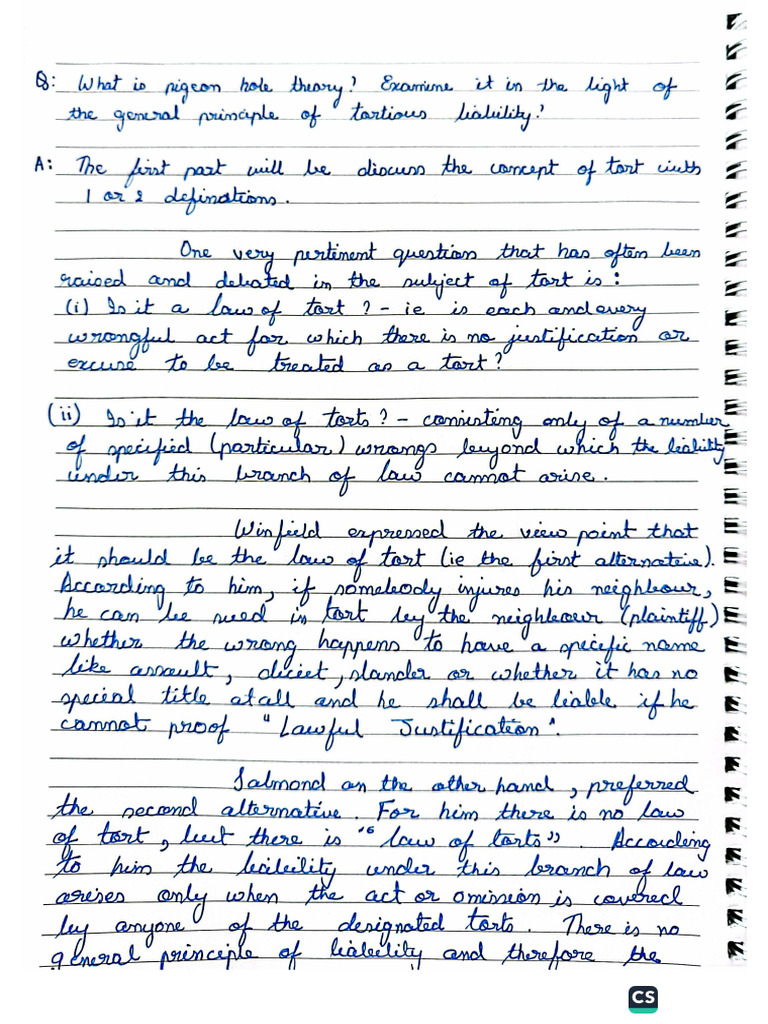 Q: What is pigeon hole theory? Examine it in the light of
the general principle of tortious liability?
A: The first part will be discuss the concept of tort with
1 or 2 definations.
One very pertinent question that has often been
raised and debated in the subject of tort is :
(i) Is it a law of tort ? - ie is each and every
wrongful act for which there is no justification or
excuse to be treated as a tort?
(ii) Is it the law of torts ? - consisting only of a number
of specified (particular) wrongs beyond which the liability
under this branch of law cannot arise.
Winfield expressed the view point that
it should be the law of tort (ie the first alternative).
According to him, if somebody injures his neighbour,
he can be sued in tort by the neighbour (plaintiff)
whether the wrong happens to have a specific name
like assault, diciet, slander or whether it has no
special title at all and he shall be liable if he
cannot proof "Lawful Justification".
Salmond on the other hand, preferred
the second alternative. For him there is no law
of tort, but there is "law of torts". According
to him the liability under this branch of law
arises only when the act or omission is covered
by anyone of the designated torts. There is no
general principle of liability and therefore the
CS